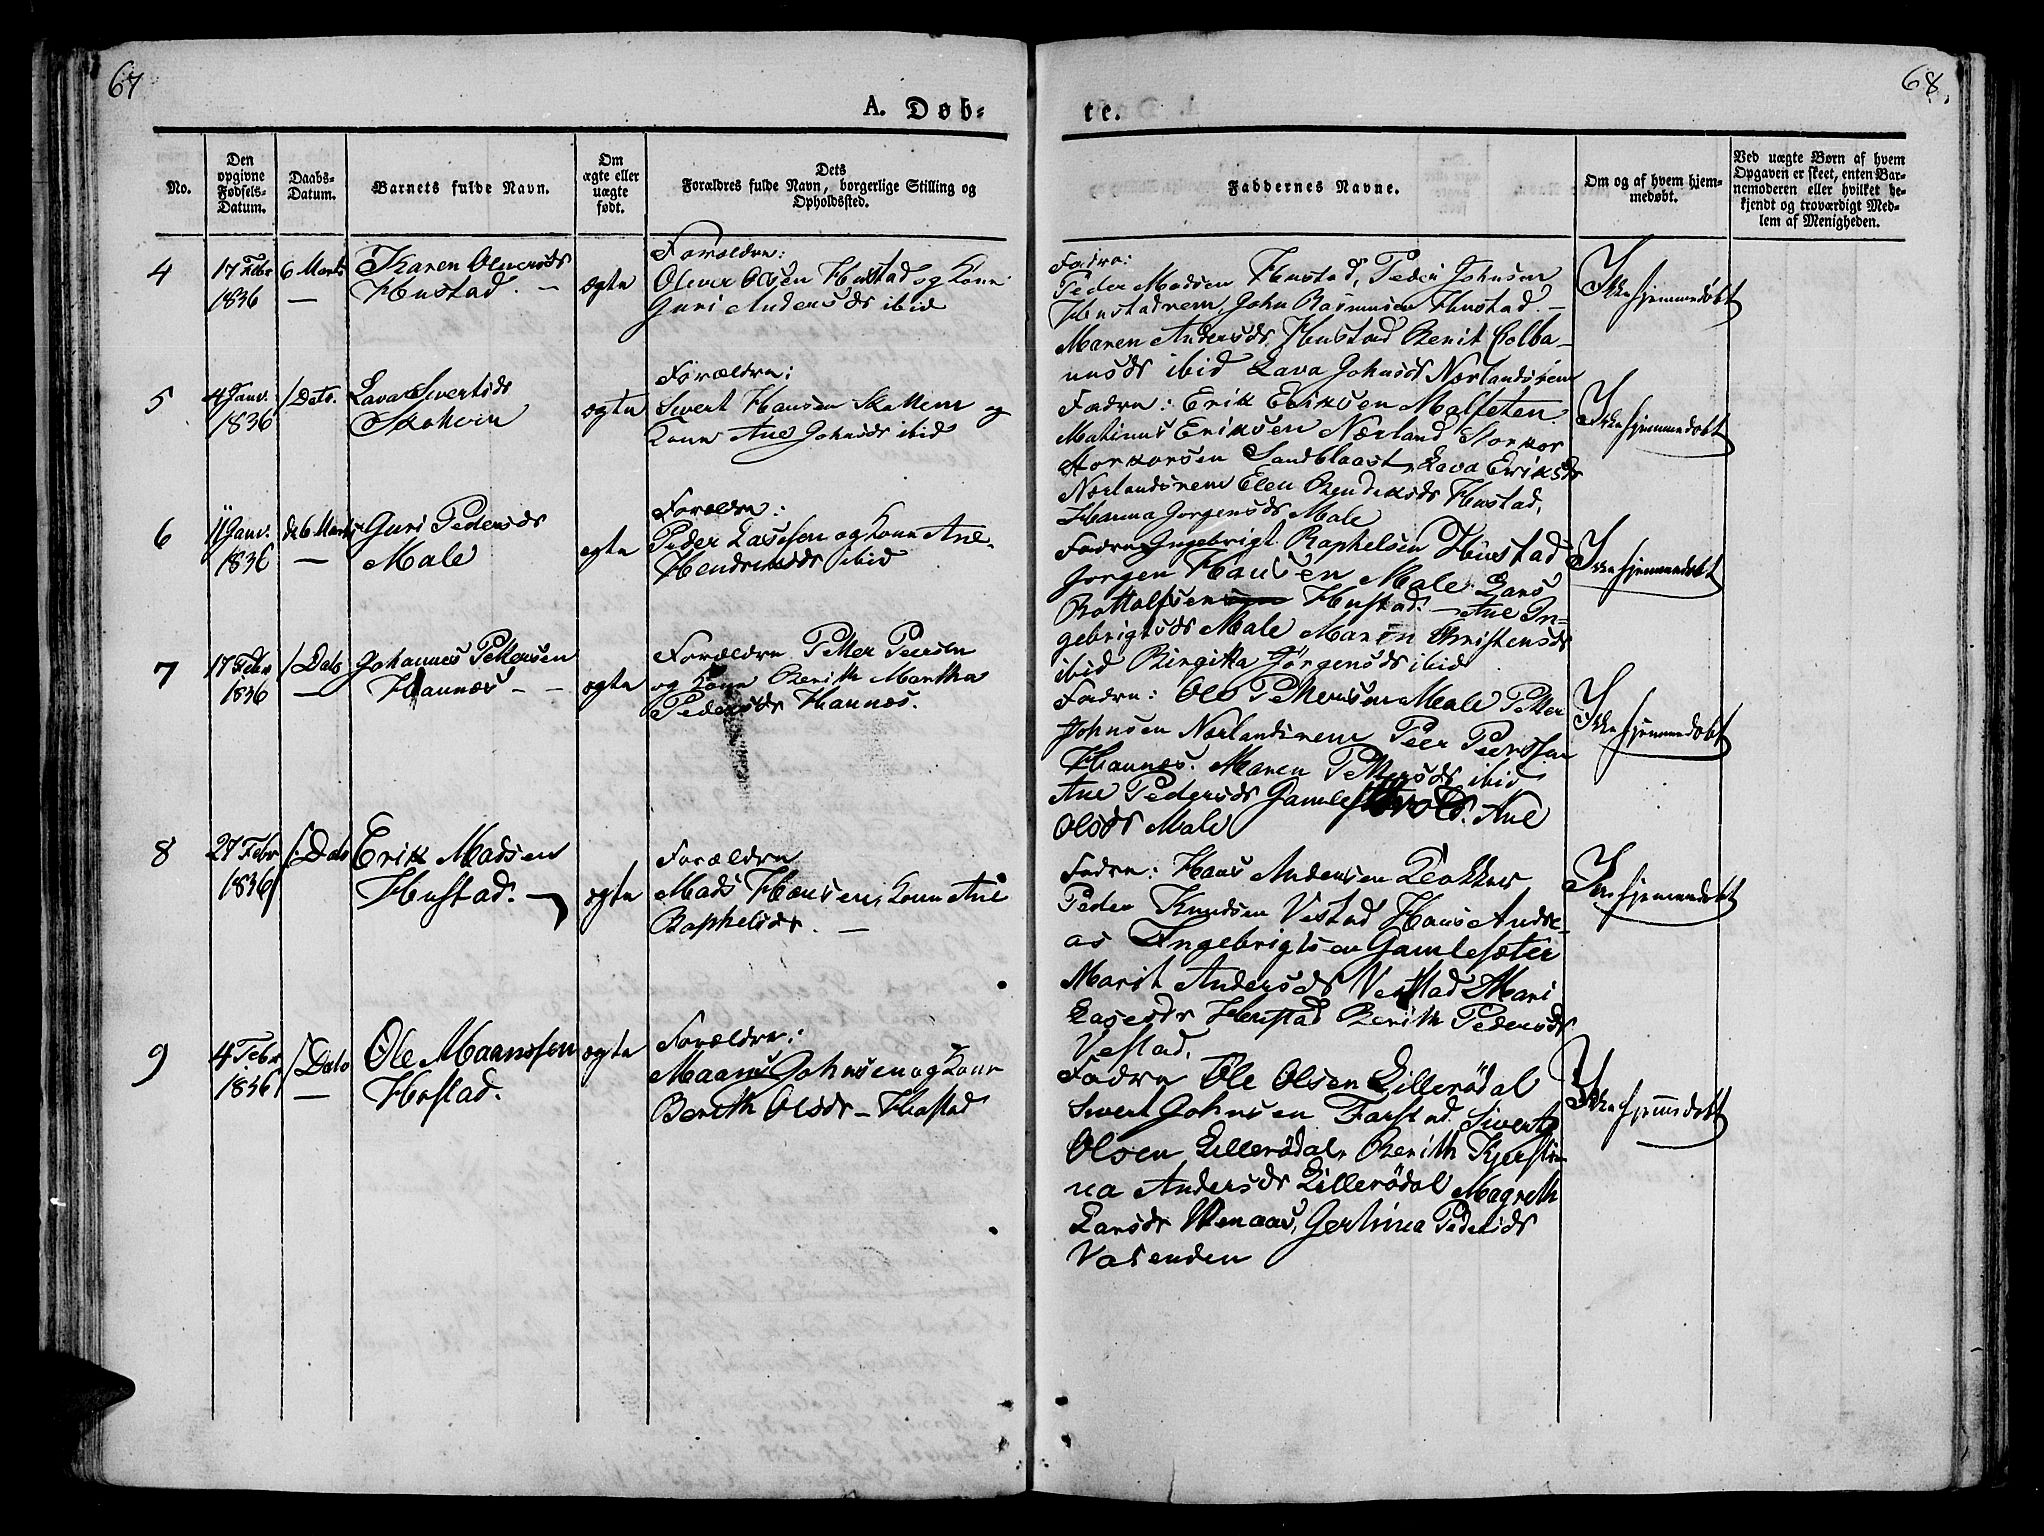 67
68
A. Døb-
te.
No.
Den opgivne Fødsels-Datum.
Daabs-Datum.
Barnets fulde Navn.
Om ægte eller uægte født.
Dets Forældres fulde Navn, borgerlige Stilling og Opholdssted.
Faddernes Navne.
Om og af hvem hjemmedøbt.
Ved uægte Børn af hvem Opgaven er skeet, enten Barnemoderen eller hvilket bekjendt og troværdigt Medlem af Menigheden.
4
17 Febr
1836
6 Marts
—
Karen Oliversdr
Hustad. —
ægte
Forældre:
Oliver Olsen Hustad og Kone
Guri Andersdr ibid
Fadre:
Peder Madsen Hustad, Peder Johnsen
Hustadnem John Rasmusen Hustad. —
Maren Andersdr Hustad Berit Colba-
nusdr ibid Lava Johnsdr Nørlandsnem
Ikke hjemmedøbt
5
4 Janv.
1836
/ Dato.
Lava Sivertsdr
ægte
Forældre:
Sivert Hansen og
Kone Ane Johnsdr ibid
Fadre: Erik Eriksen Malfeten
Matinus Eriksen Nærland Storkor
Storkorsen Sandblaast, Lava Eriksdr
Nørlandsnem Elen Bendeksdr Hustad,
Hanna Jorgensdr Male
Ikke hjemmedøbt
6
11 Janv.
1836
de 6 Marts
—
Guri Pedersdr
Male
ægte
Foreldre:
Peder Lassesen og Kone Ane
Hendriksdr ibid
Fadre Ingebrigt Raphelsen Hustad
Jorgen Hansen Male Lars
Hustad. — Ane In=
gebrigtsdr Male Maren Christensdr
ibid Birgitta Jørgensdr ibid
Ikke hjemmedøbt
7
17 Febr
1836
/ Dato
—
Johannes Pettersen
Hannæs — —
ægte
Forældre Petter Peersen
og Kone Berith Martha
Pedersdr Hannæs.
Fadre: Ole Pettersen Male Petter
Johnsen Nørlandsnem Peer Peersen
Hannæs. Maren Pettersdr ibid
Ane Pedersdr Ane
Olsdr Male
Ikke hjemmedøbt
8
27 Febr
1836
/: Dato
Erik Madsen
Hustad. —
ægte
Forældre
Mads Hansen, Kone Ane
Raphelsdr. —
Fadre: Hans Andersen
Peder Knudsen Vestad Hans Andre-
as Ingebrigtsen Gamlesæter
Marit Andersdr Vestad Mari
Lasesdr Hustad Berith Pedersdr
Vestad.
Ikke hjemmedøbt
9
4 Febr
1836
/ Dato
—
Ole Maanssen
Hostad.
ægte
Forældre:
Maans Johnsen og Kone
Berith Olsdr — Hostad
Fadre Ole Olsen Lillerødal
Sivert Johnsen Farstad. Sivert
Olsen Lillerødal, Berith Kjersti-
na Andersdr Lillerødal Magreth
Larsdr Gertina Pedersdr
Vasenden
Ikke hjemmedøbt